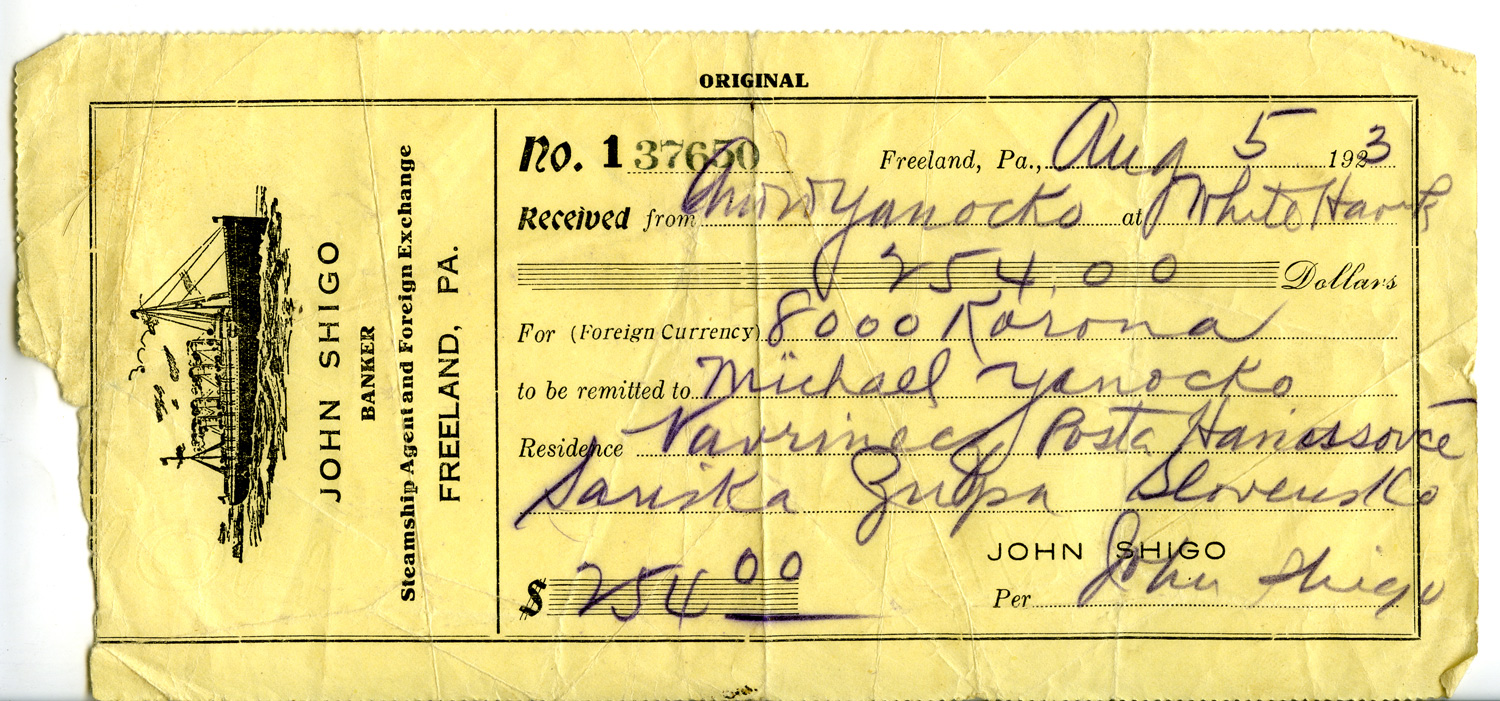 ORIGINAL
JOHN SHIGO
BANKER
Steamship Agent and Foreign Exchange
FREELAND, PA.
No. 1 37650 Freeland, Pa., Aug 5 1923
Received from Yanocko at White Haven
254.00 Dollars
For (Foreign Currency) 8000 Korona
to be remitted to Michael Yanocko
Residence Vavrinec Posta Hanussovce
Sariska Zupa Slovensko
JOHN SHIGO
$ 254 00 Per John Shigo